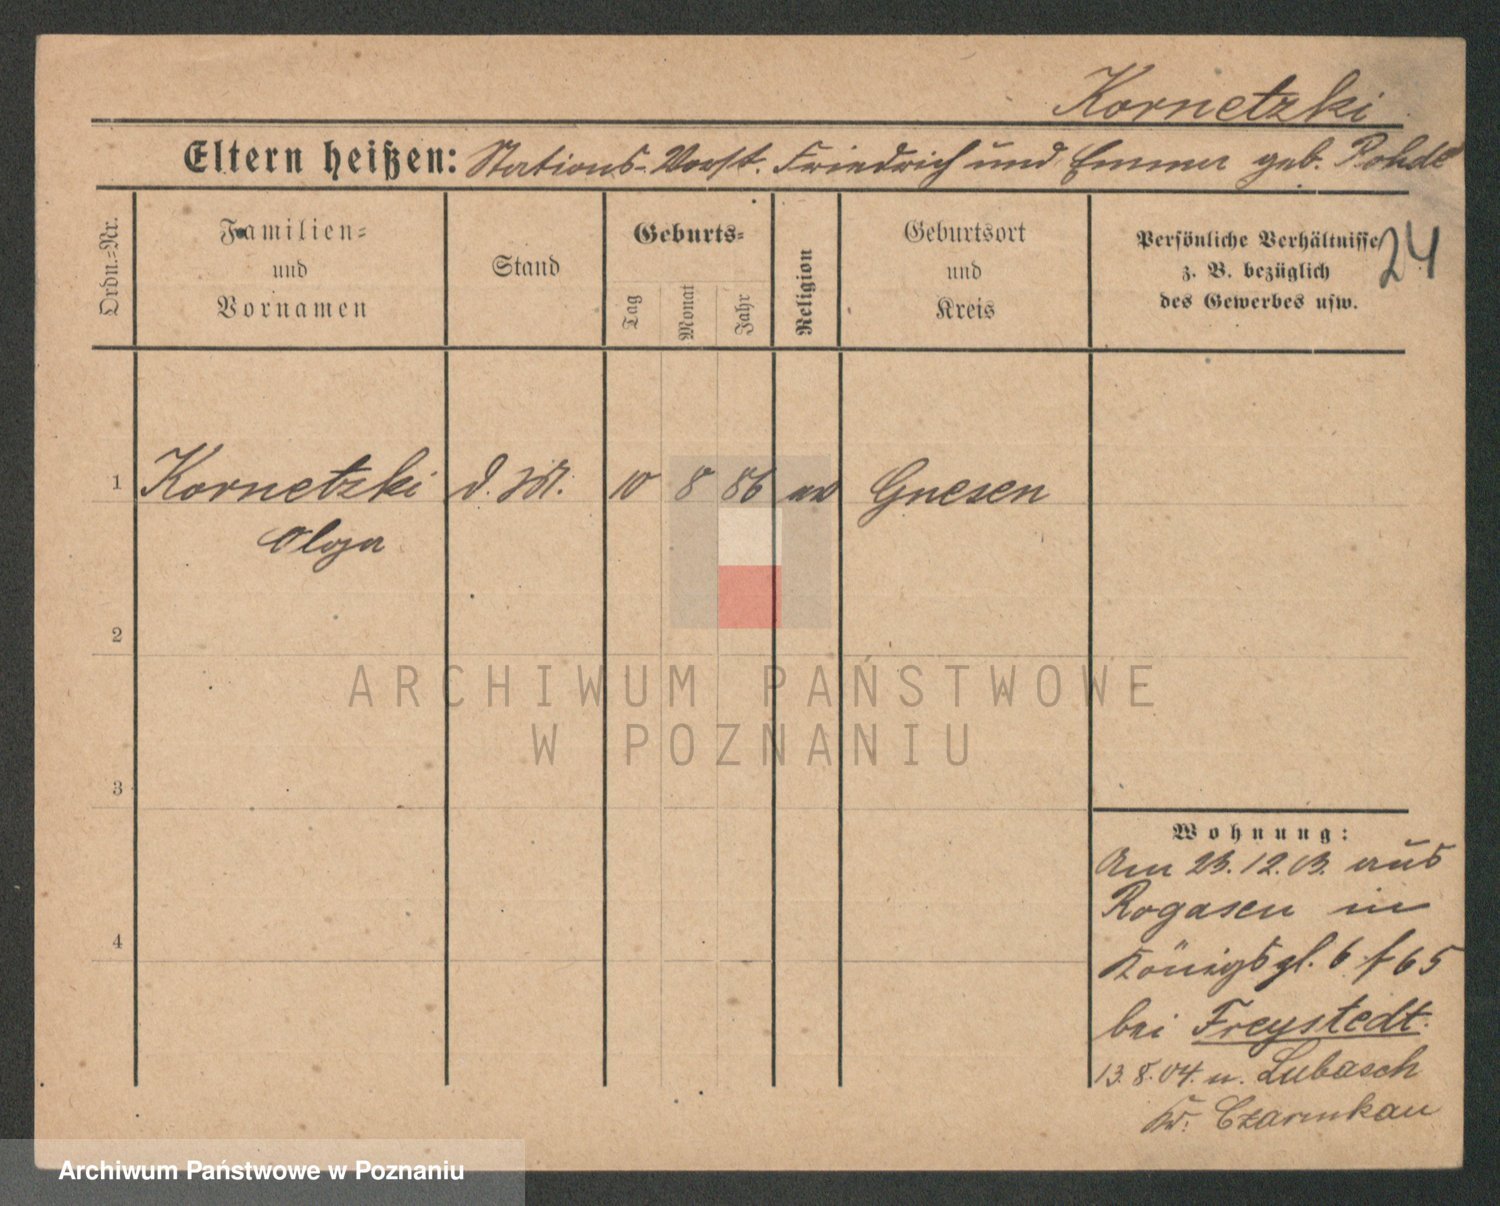 Kornetzki
Eltern heißen: Stations-Vorst. Friedrich und Emma geb. Rohde
Ordn.=Nr.
Familien=
und
Vornamen
Stand
Geburts=
Tag
Monat
Jahr
Religion
Geburtsort
und
Kreis
Persönliche Verhältnisse
z. B. bezüglich
des Gewerbes usw.
24
1 Kornetzki 10 8 86 ev Gnesen
Olga
2
ARCHIWUM PAŃSTWOWE
W POZNANIU
3
Wohnung:
Am 23.12.03. aus
Rogasen in
4
Königspl. 6 f 65
bei Freystedt.
13.8.04. n. Lubasch
Kr. Czarnikau
Archiwum Państwowe w Poznaniu